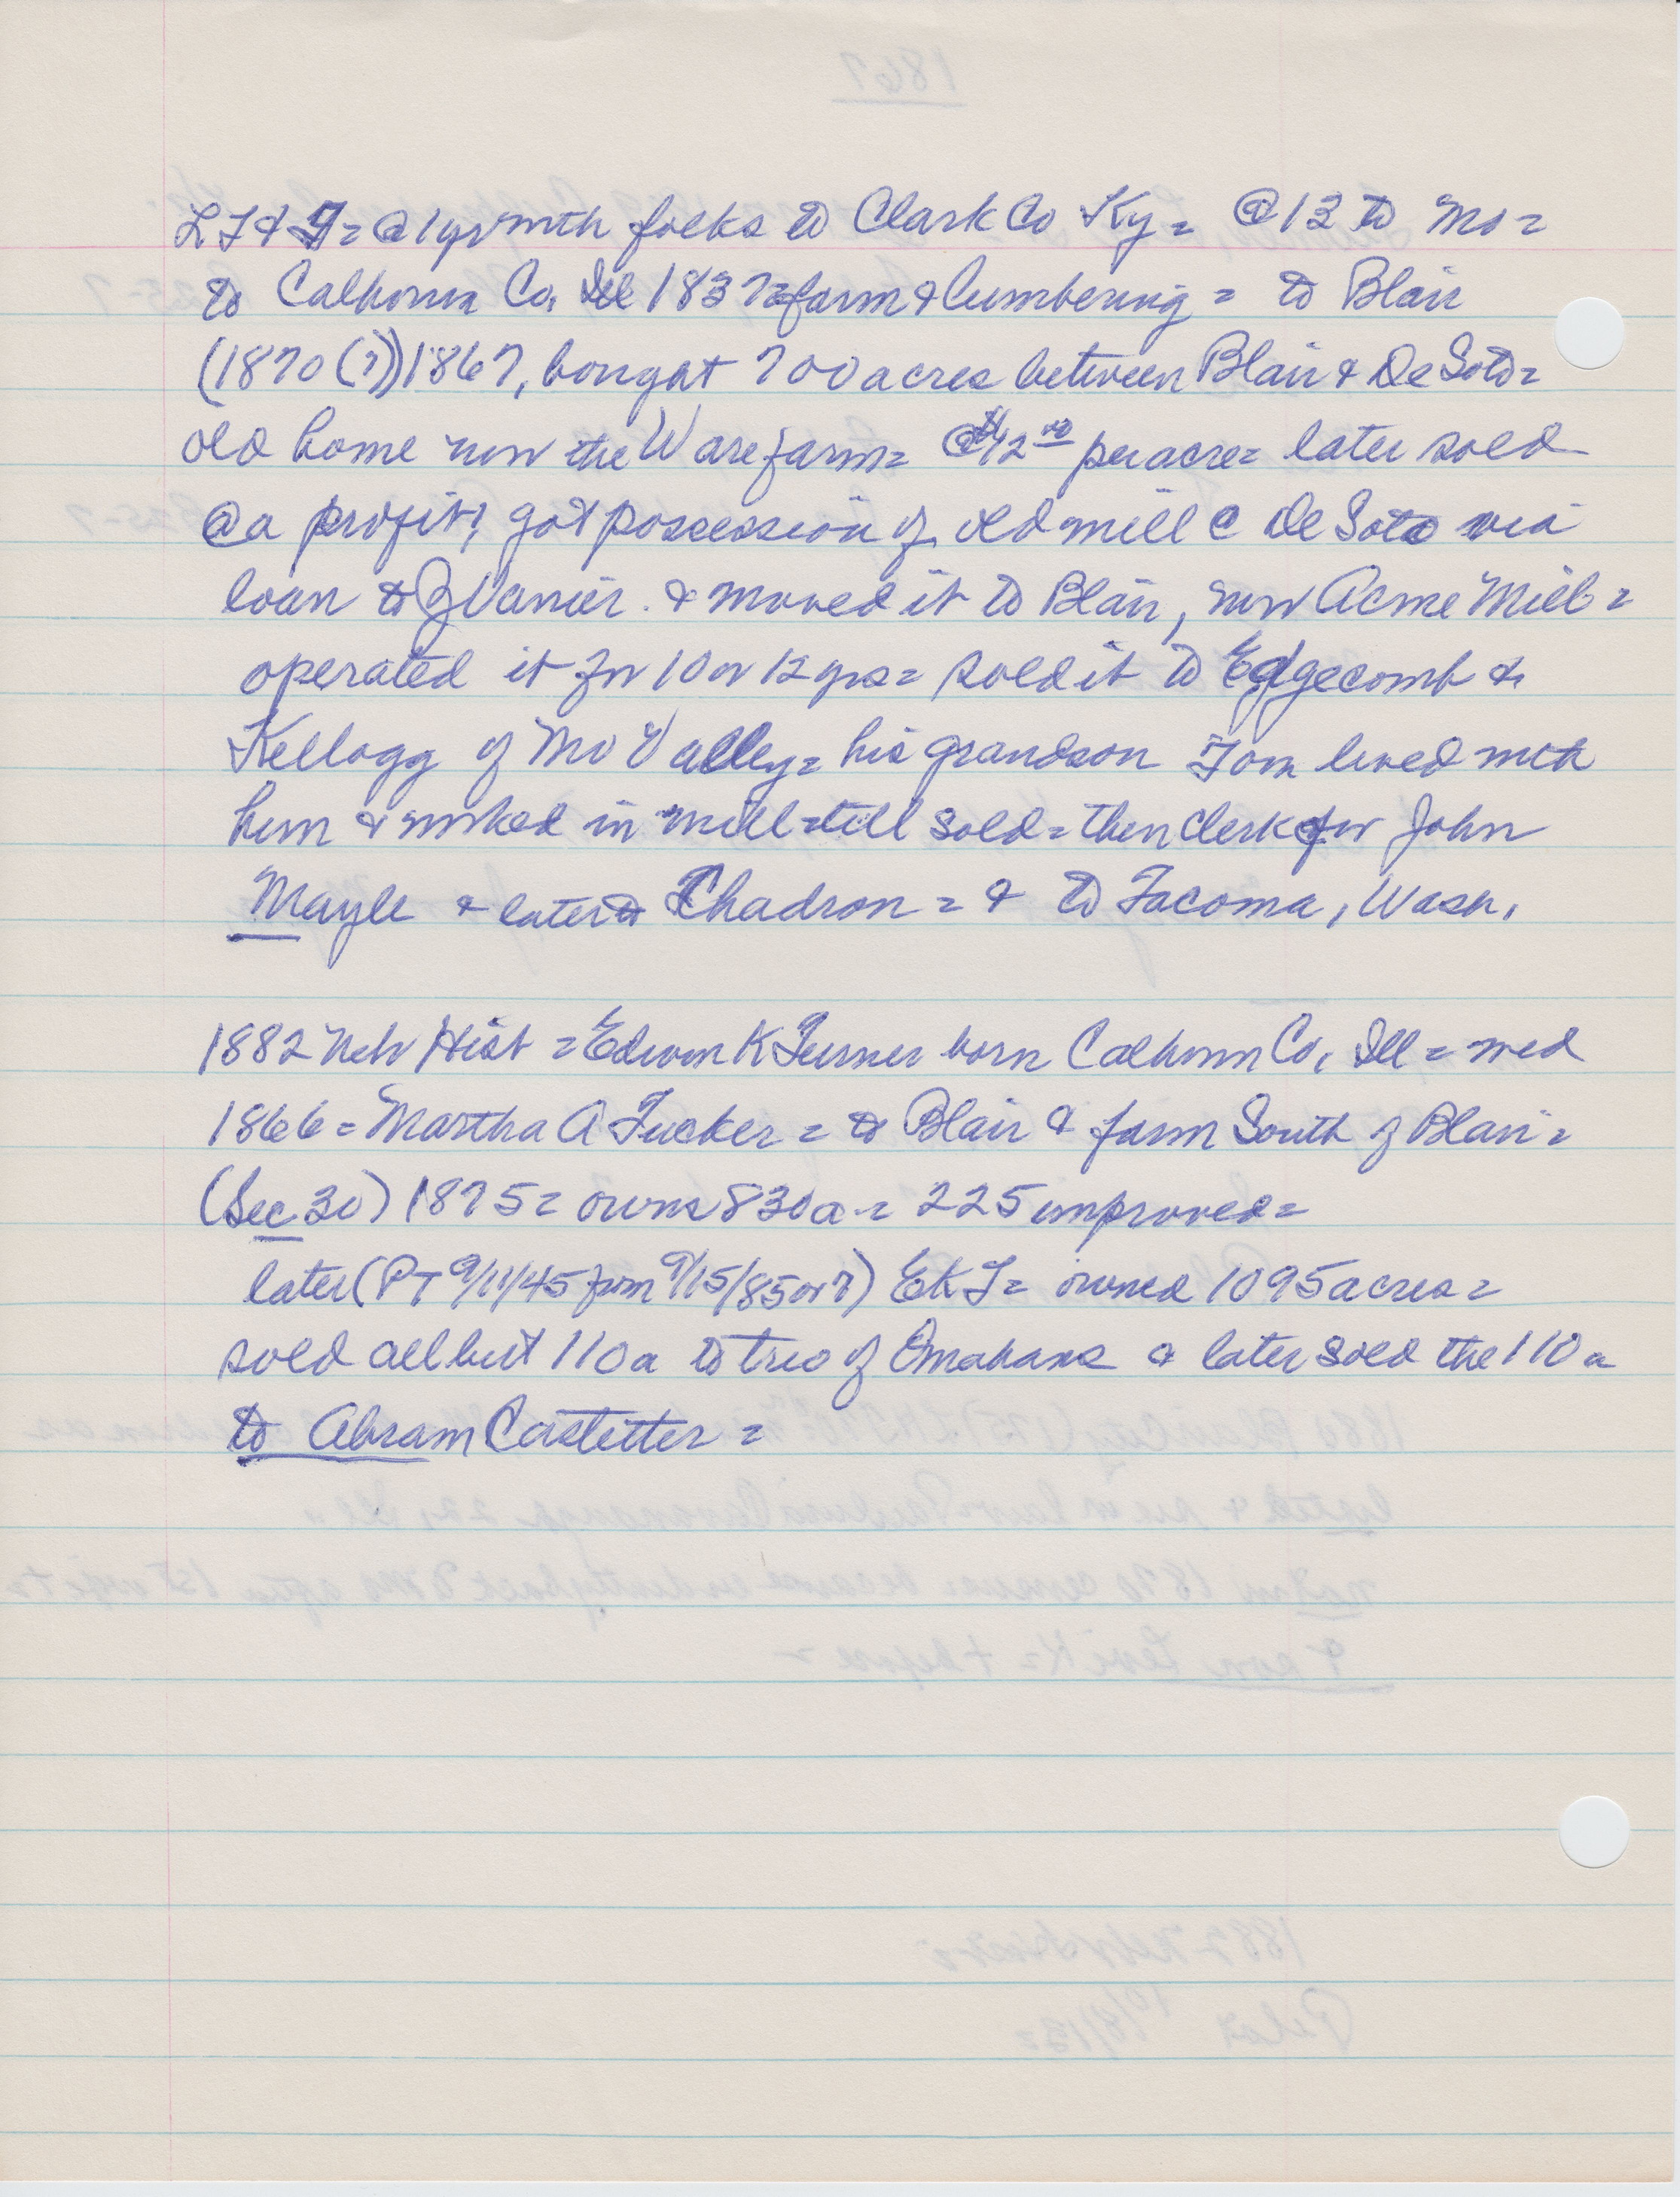 @ 1 yr with folks to Clark Co Ky = @ 13 to Mo =
to Calhoun Co. Ill 1837 = farm & lumbering = to Blair
(1870 (?)) 1867, bought 700 acres between Blair & De Soto =
old home now the Ware farm = @ $12.00 per acre = later sold
@ a profit; got possession of old mill @ De Soto via
loan to Z Vanier. & moved it to Blair, now Acme Mill =
operated it for 10 or 12 yrs = sold it to Edgecomb &
Kellogg of Mo Valley = his grandson Tom lived with
him & worked in mill till sold = then clerk for John
Mayle & later to Chadron = & to Tacoma, Wash.
1882 Neb Hist = Edwin K Turner born Calhoun Co. Ill = wed
1866 = Martha A Tucker = to Blair & farm South of Blair =
(Sec 30) 1875 = owns 830 a = 225 improved =
later (PT 9/11/45 from 9/15/85 or 7) EKT = owned 1095 acres =
sold all but 110 a to trio of Omahans & later sold the 110 a
to Abram Castetter =